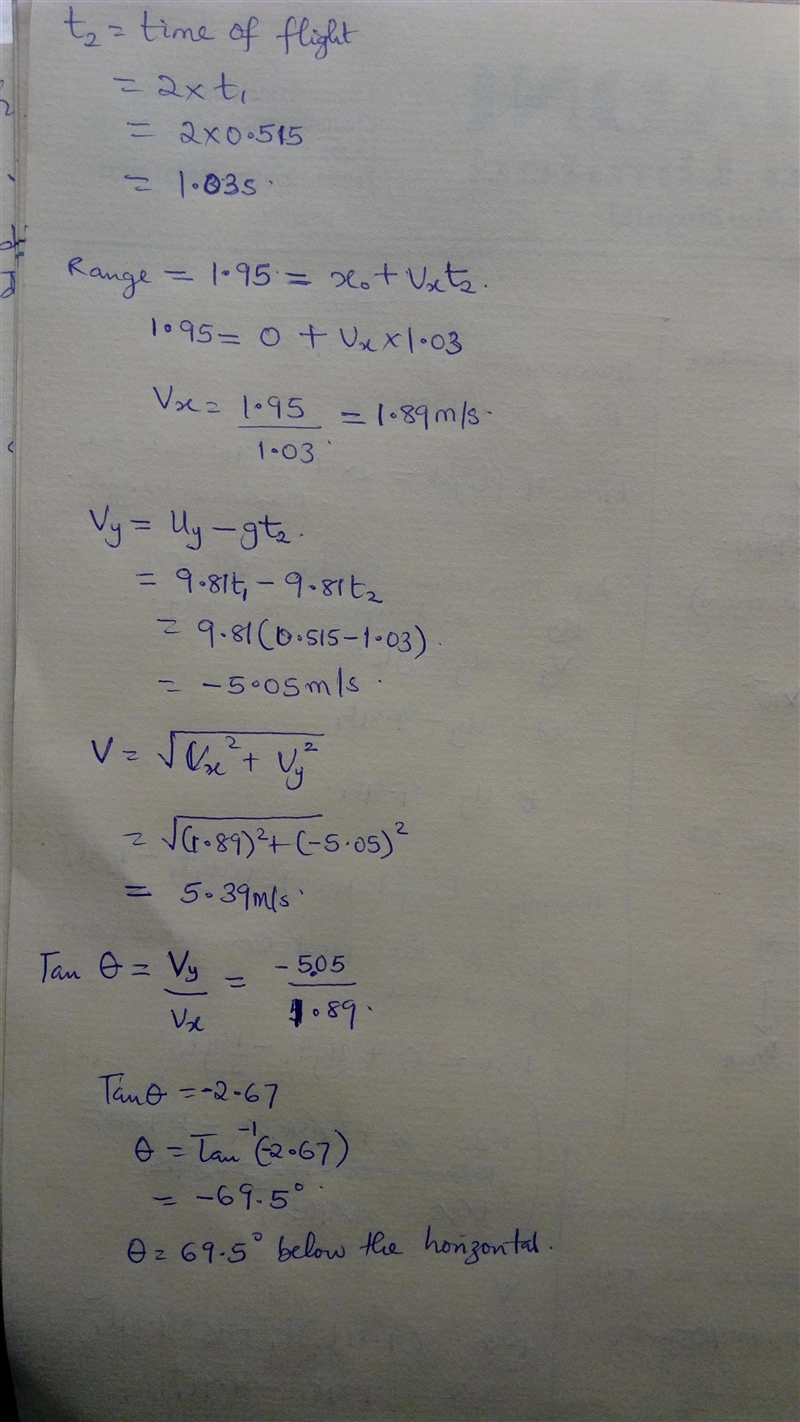 t₂ = time of flight
= 2 × t₁
= 2×0.515
= 1.03s.
Range = 1.95 = x₀ + Vₓt₂.
1.95 = 0 + Vₓ × 1.03
Vₓ = 1.95/1.03 = 1.89 m/s.
Vy = Uy − gt₂.
= 9.81t₁ − 9.81t₂
= 9.81(0.515−1.03).
= −5.05 m/s.
V = √(Vₓ² + Vy²)
= √((1.89)² + (−5.05)²)
= 5.39 m/s.
Tan θ = Vy/Vₓ = −5.05/1.89.
Tan θ = −2.67
θ = Tan⁻¹(−2.67)
= −69.5°.
θ = 69.5° below the horizontal.